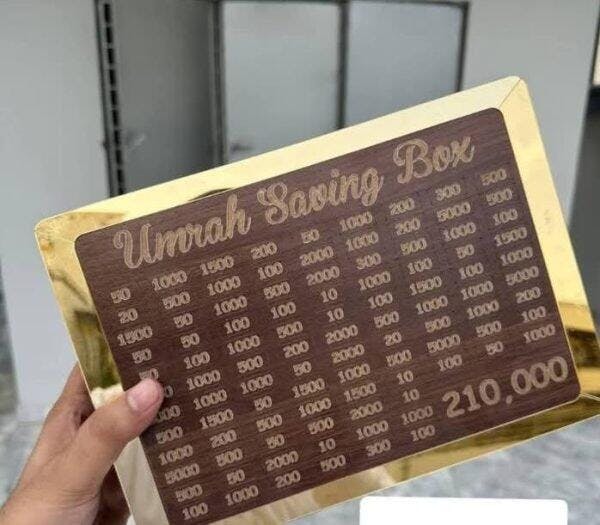 Umrah Saving Box
50 1000 1500 200 50 1000 200 300 500
20 500 1000 100 2000 1000 200 5000 500
1500 50 1000 500 2000 300 500 1000 100
50 50 100 100 10 1000 100 50 1500
100 1000 500 10 100 1500 1000 1000
1000 500 200 2000 500 1000 1000 5000
1000 1000 50 2000 20 500 1000 200
500 1500 50 1500 1000 500 5000 500 100
1000 200 50 1000 500 10 100 50 1000
5000 500 500 500 2000 10
500 50 2000 10 1000 1000 210,000
100 1000 200 500 300 100